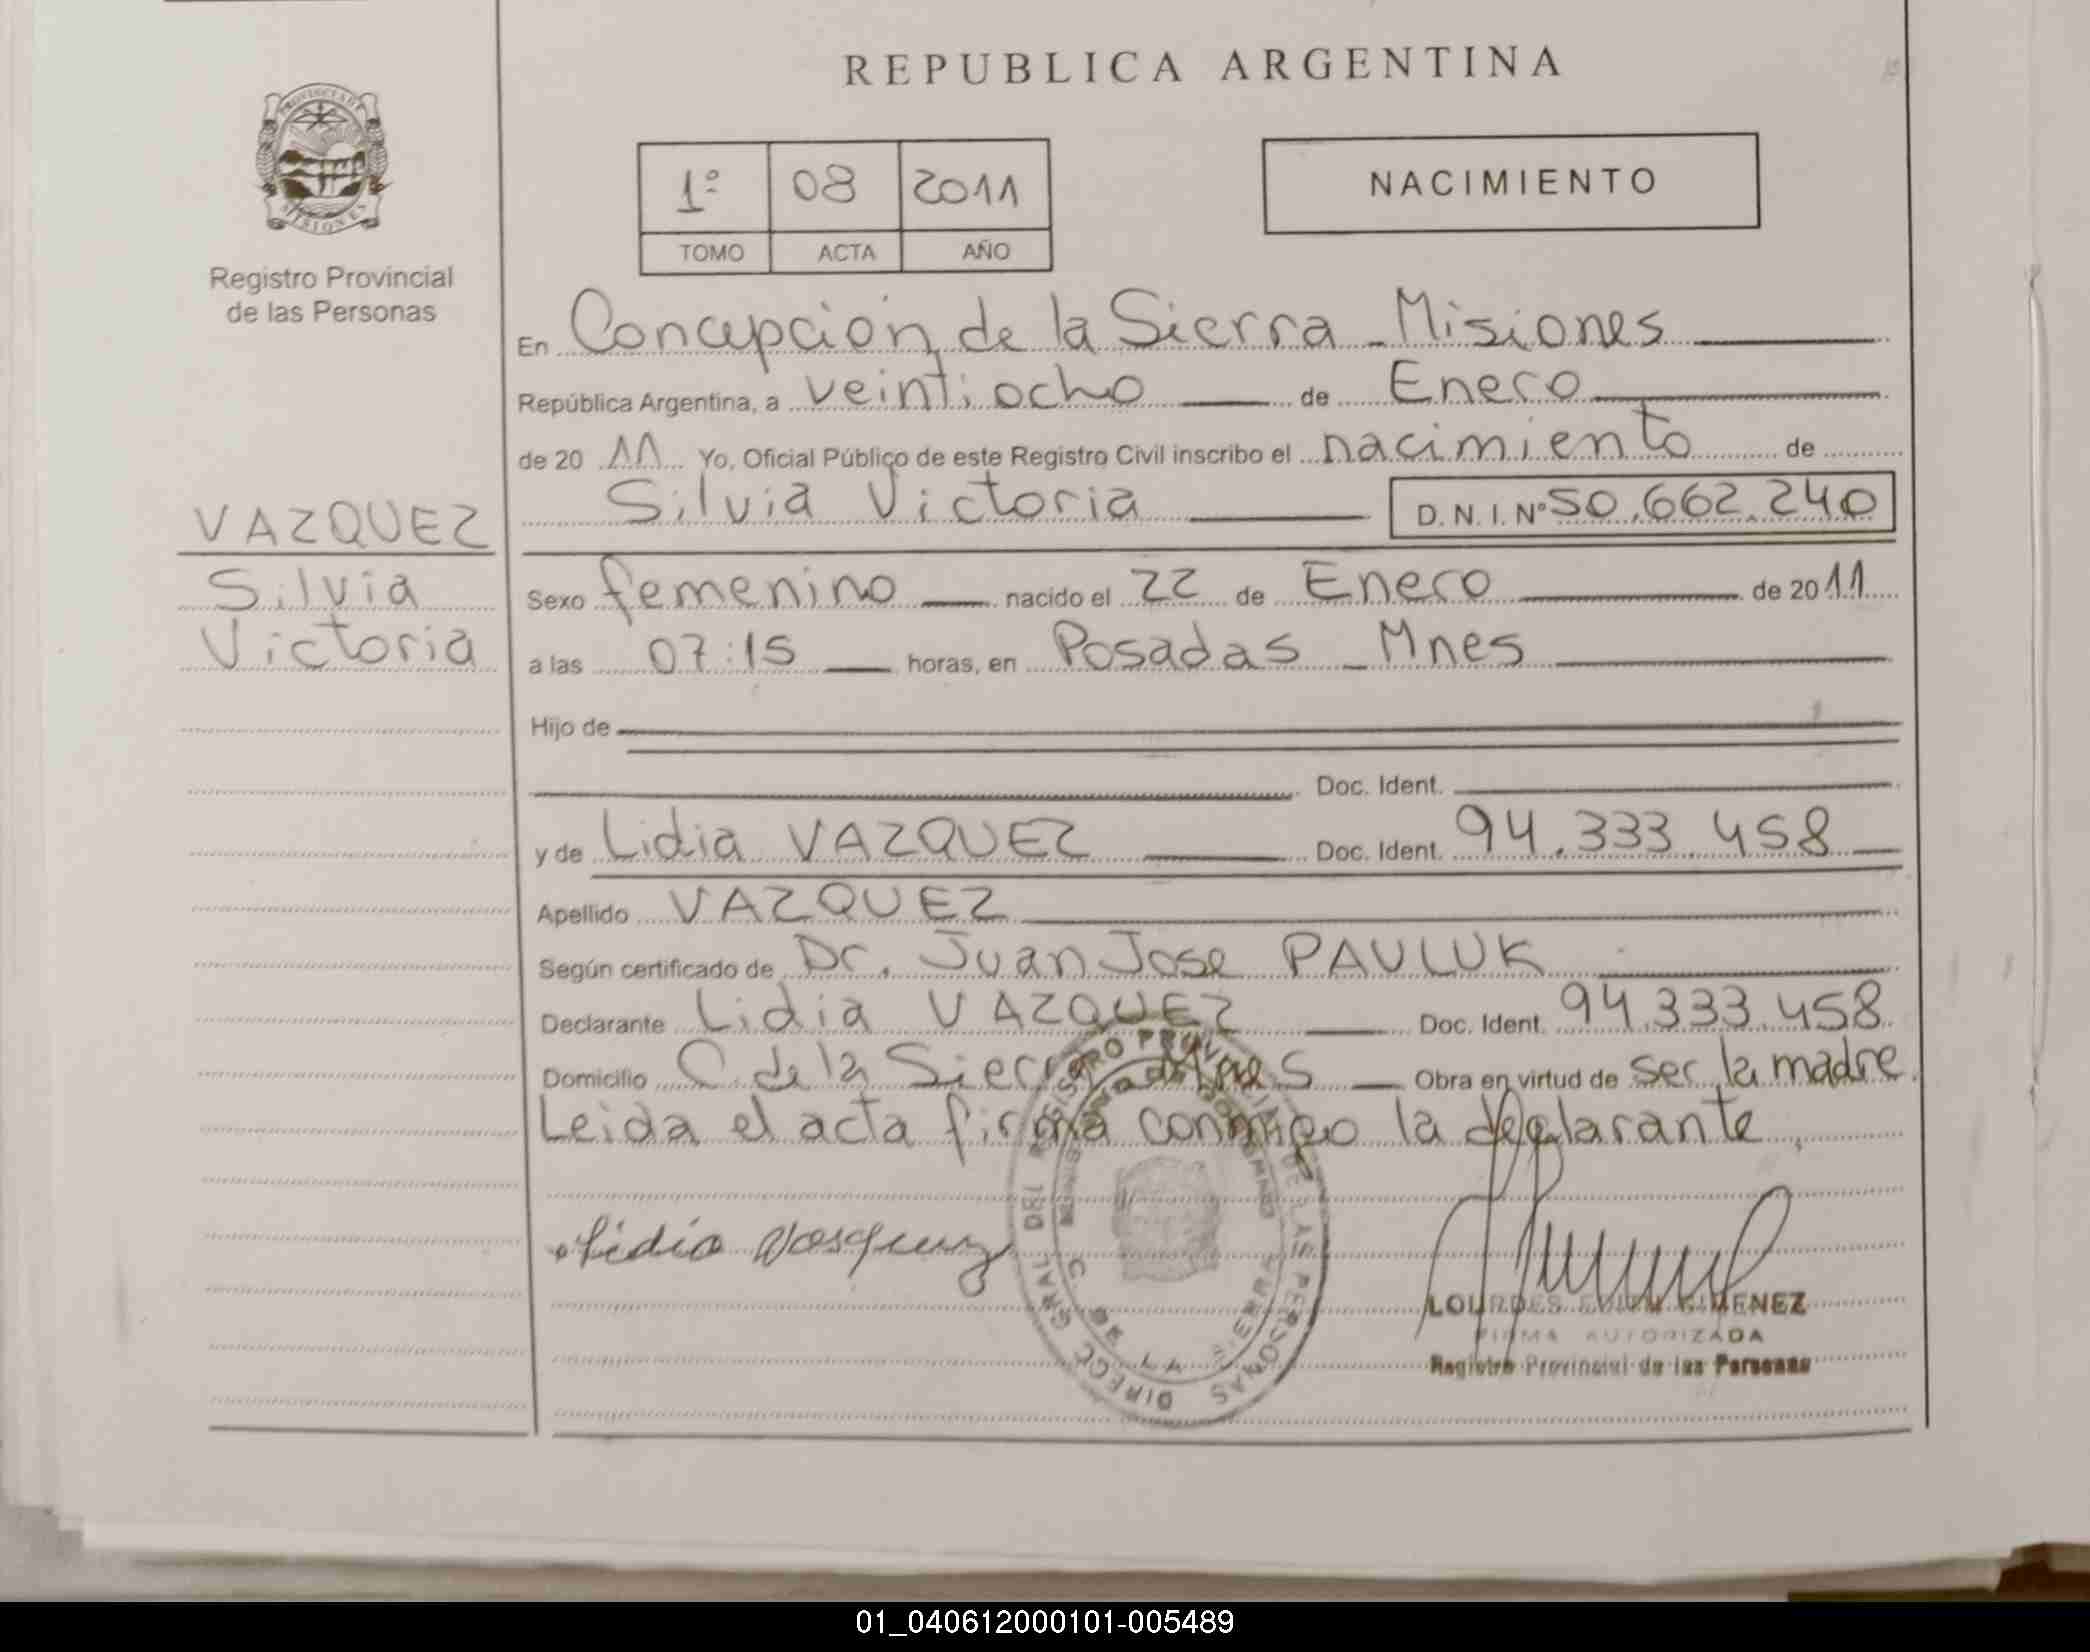 REPUBLICA ARGENTINA
PROVINCIA DE MISIONES
Registro Provincial
de las Personas
1º 08 2011
TOMO ACTA AÑO
NACIMIENTO
En Concepción de la Sierra - Misiones
República Argentina, a veintiocho de Enero
de 20 11 Yo, Oficial Público de este Registro Civil inscribo el nacimiento de
Silvia Victoria D.N.I. Nº 50.662.240
VAZQUEZ
Silvia
Victoria
Sexo femenino nacido el 22 de Enero de 2011
a las 07:15 horas, en Posadas - Mnes
Hijo de
Doc. Ident.
y de Lidia VAZQUEZ Doc. Ident. 94.333.458
Apellido VAZQUEZ
Según certificado de Dr. Juan Jose PAULUK
Declarante Lidia VAZQUEZ Doc. Ident. 94.333.458
Domicilio C. de la Sierra Mnes Obra en virtud de ser la madre.
Leida el acta firma conmigo la declarante,
Lidia Vasquez
DIRECC GRAL DEL REGISTRO PROVINCIAL DE LAS PERSONAS
LOURDES GIMENEZ
FIRMA AUTORIZADA
Registro Provincial de las Personas
01_040612000101-005489